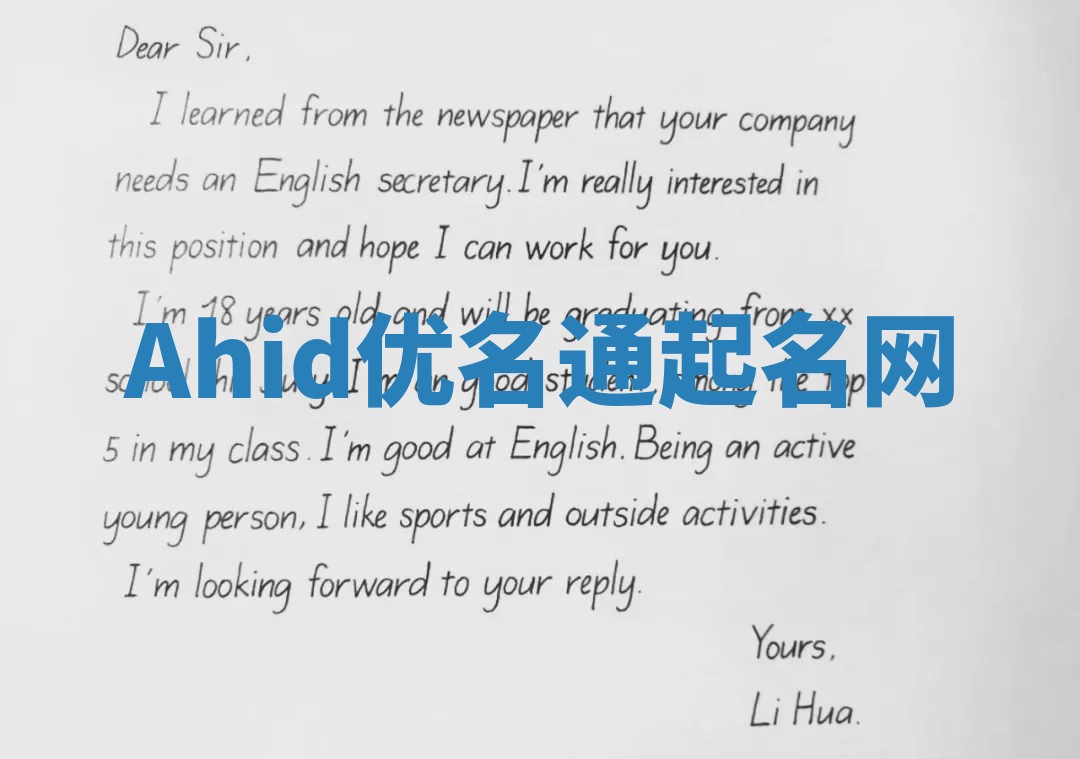 Dear Sir,
I learned from the newspaper that your company
needs an English secretary. I'm really interested in
this position and hope I can work for you.
I'm 18 years old and will be graduating from xx
Ahid优名通起名网
school July. I'm good student, among the top
5 in my class. I'm good at English. Being an active
young person, I like sports and outside activities.
I'm looking forward to your reply.
Yours,
Li Hua.